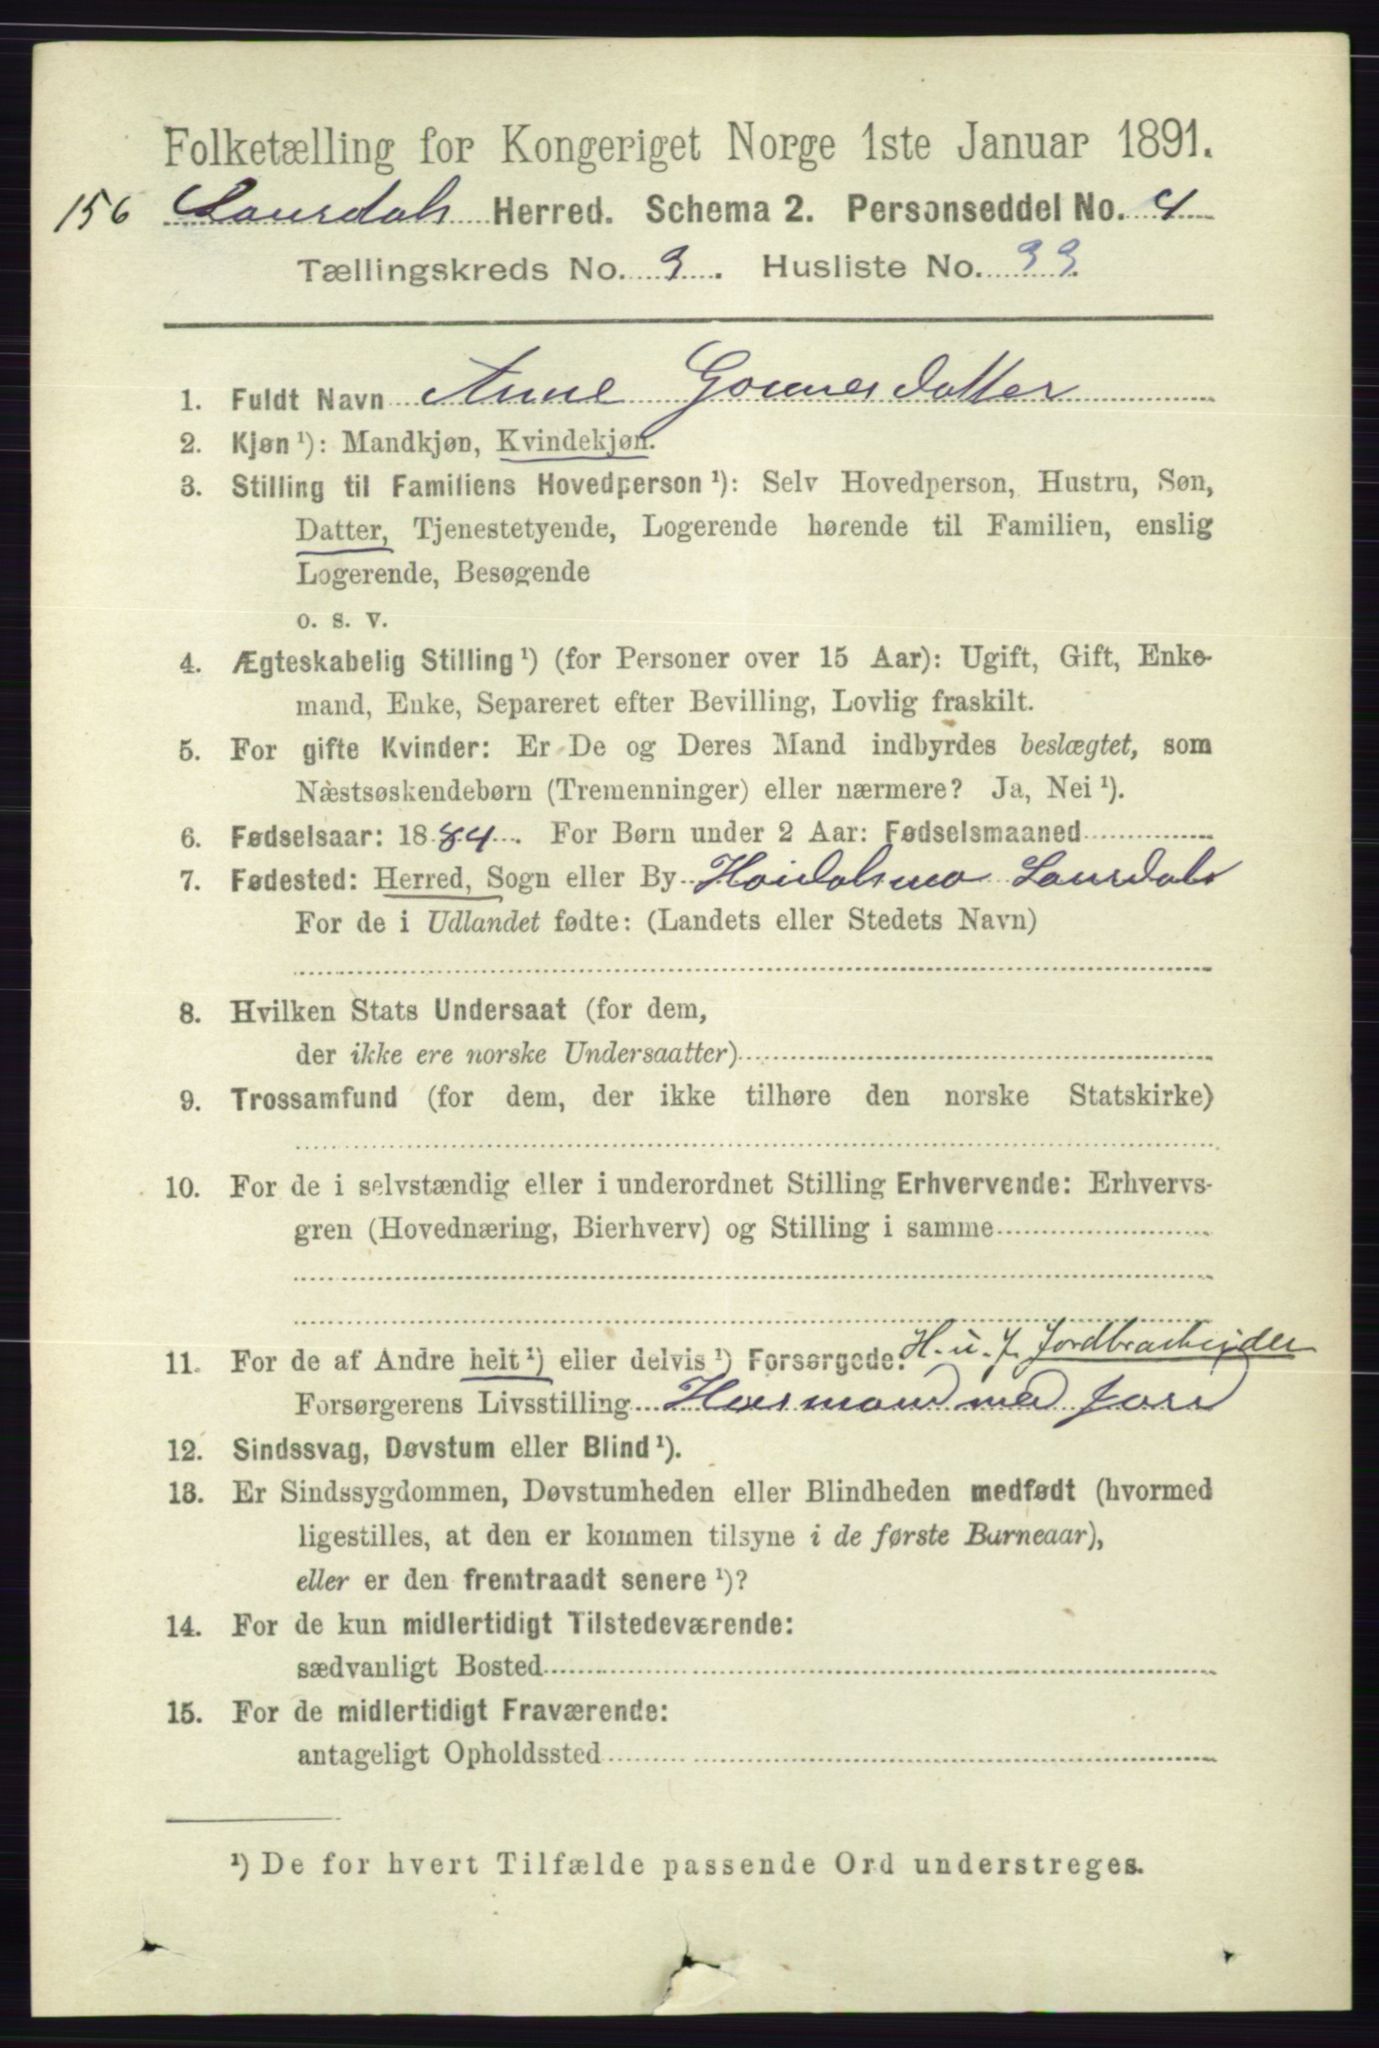 Folketælling for Kongeriget Norge 1ste Januar 1891.
156 Laurdals Herred. Schema 2. Personseddel No. 4
Tællingskreds No. 3. Husliste No. 33.
1. Fuldt Navn Anne Gunnesdatter
2. Kjøn ¹): Mandkjøn, Kvindekjøn.
3. Stilling til Familiens Hovedperson ¹): Selv Hovedperson, Hustru, Søn,
Datter, Tjenestetyende, Logerende hørende til Familien, enslig
Logerende, Besøgende
o. s. v.
4. Ægteskabelig Stilling ¹) (for Personer over 15 Aar): Ugift, Gift, Enke-
mand, Enke, Separeret efter Bevilling, Lovlig fraskilt.
5. For gifte Kvinder: Er De og Deres Mand indbyrdes beslægtet, som
Næstsøskendebørn (Tremenninger) eller nærmere? Ja, Nei ¹).
6. Fødselsaar: 1884. For Børn under 2 Aar: Fødselsmaaned
7. Fødested: Herred, Sogn eller By Høidalsmo Laurdals
For de i Udlandet fødte: (Landets eller Stedets Navn)
8. Hvilken Stats Undersaat (for dem,
der ikke ere norske Undersaatter)
9. Trossamfund (for dem, der ikke tilhøre den norske Statskirke)
10. For de i selvstændig eller i underordnet Stilling Erhvervende: Erhvervs-
gren (Hovednæring, Bierhverv) og Stilling i samme
H. u. J. Jordbrarbeider
11. For de af Andre helt ¹) eller delvis ¹) Forsørgede:
Forsørgerens Livsstilling Husmand med Jord
12. Sindssvag, Døvstum eller Blind ¹).
13. Er Sindssygdommen, Døvstumheden eller Blindheden medfødt (hvormed
ligestilles, at den er kommen tilsyne i de første Barneaar),
eller er den fremtraadt senere ¹)?
14. For de kun midlertidigt Tilstedeværende:
sædvanligt Bosted
15. For de midlertidigt Fraværende:
antageligt Opholdssted
¹) De for hvert Tilfælde passende Ord understreges.